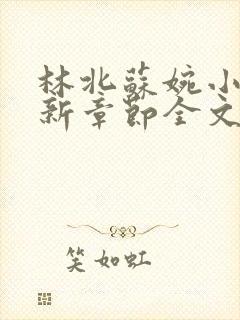 林北蘇婉小
新章節全文
笑如虹